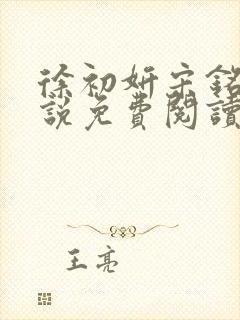 徐初妍宋銘
說免費閱讀
王亮